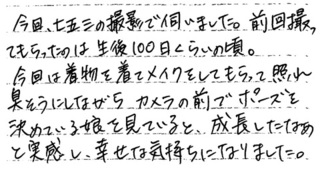 今回、七五三の撮影で伺いました。前回撮っ
てもらったのは生後100日くらいの頃。
今回は着物を着てメイクをしてもらって照れ
臭そうにしながらカメラの前でポーズを
決めている娘を見ていると、成長したなぁ
と実感し、幸せな気持ちになりました。